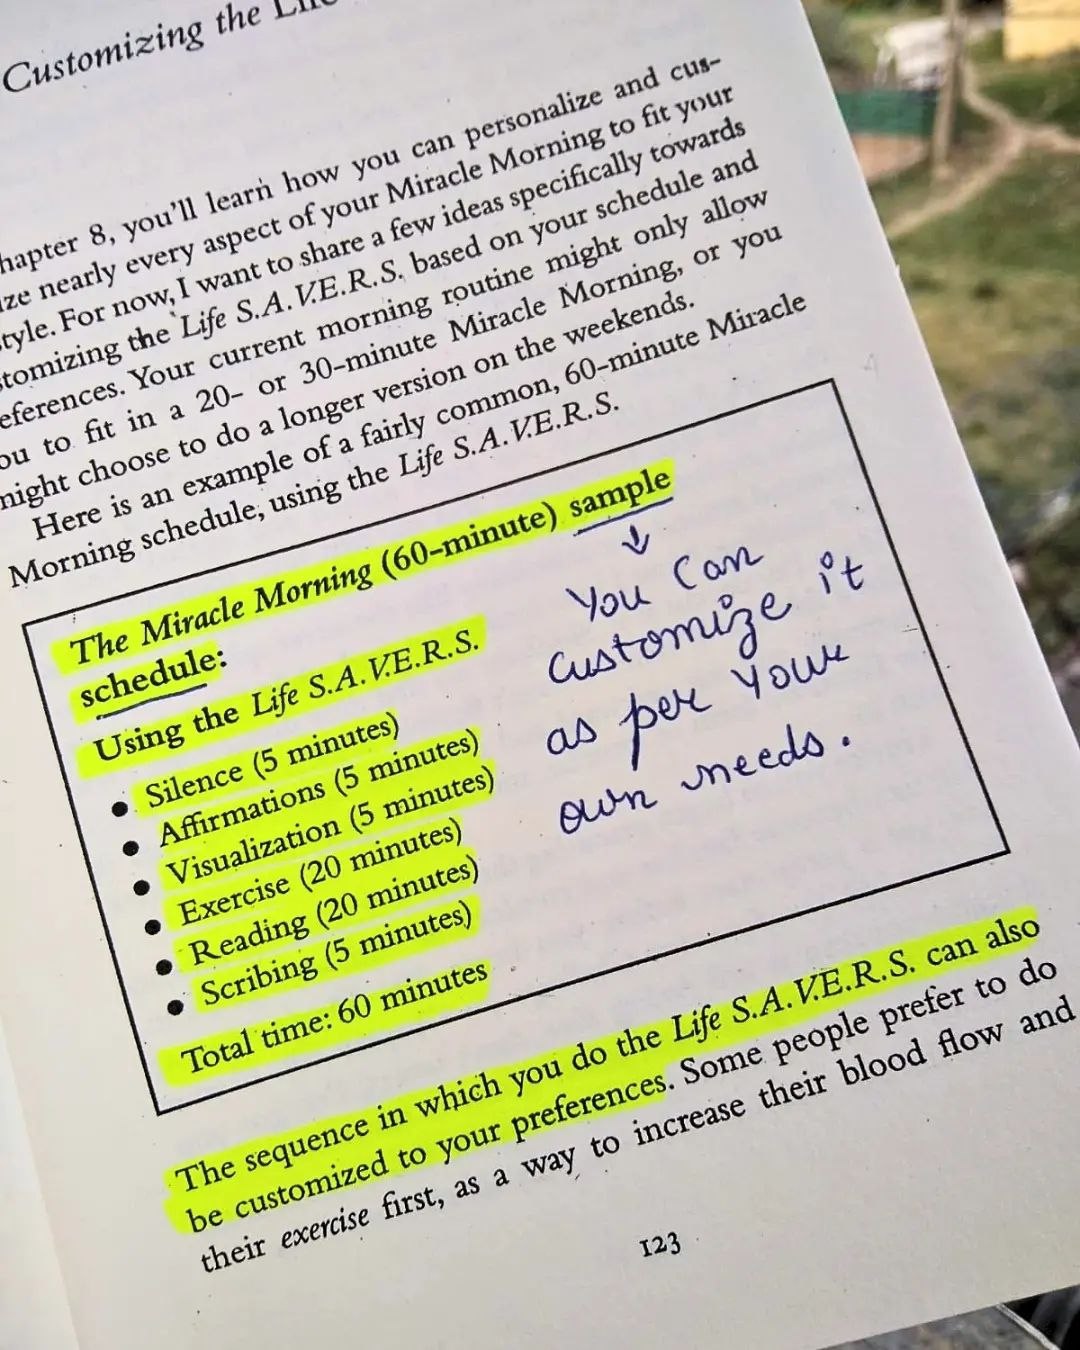 Customizing the
hapter 8, you'll learn how you can personalize and cus-
ize nearly every aspect of your Miracle Morning to fit your
style. For now, I want to share a few ideas specifically towards
stomizing the Life S.A.V.E.R.S. based on your schedule and
eferences. Your current morning routine might only allow
ou to fit in a 20- or 30-minute Miracle Morning, or you
night choose to do a longer version on the weekends.
Here is an example of a fairly common, 60-minute Miracle
Morning schedule, using the Life S.A.V.E.R.S.
The Miracle Morning (60-minute) sample
schedule:
Using the Life S.A.V.E.R.S.
• Silence (5 minutes)
• Affirmations (5 minutes)
• Visualization (5 minutes)
• Exercise (20 minutes)
• Reading (20 minutes)
• Scribing (5 minutes)
Total time: 60 minutes
You Can
customize it
as per Your
own needs.
The sequence in which you do the Life S.A.V.E.R.S. can also
be customized to your preferences. Some people prefer to do
their exercise first, as a way to increase their blood flow and
123